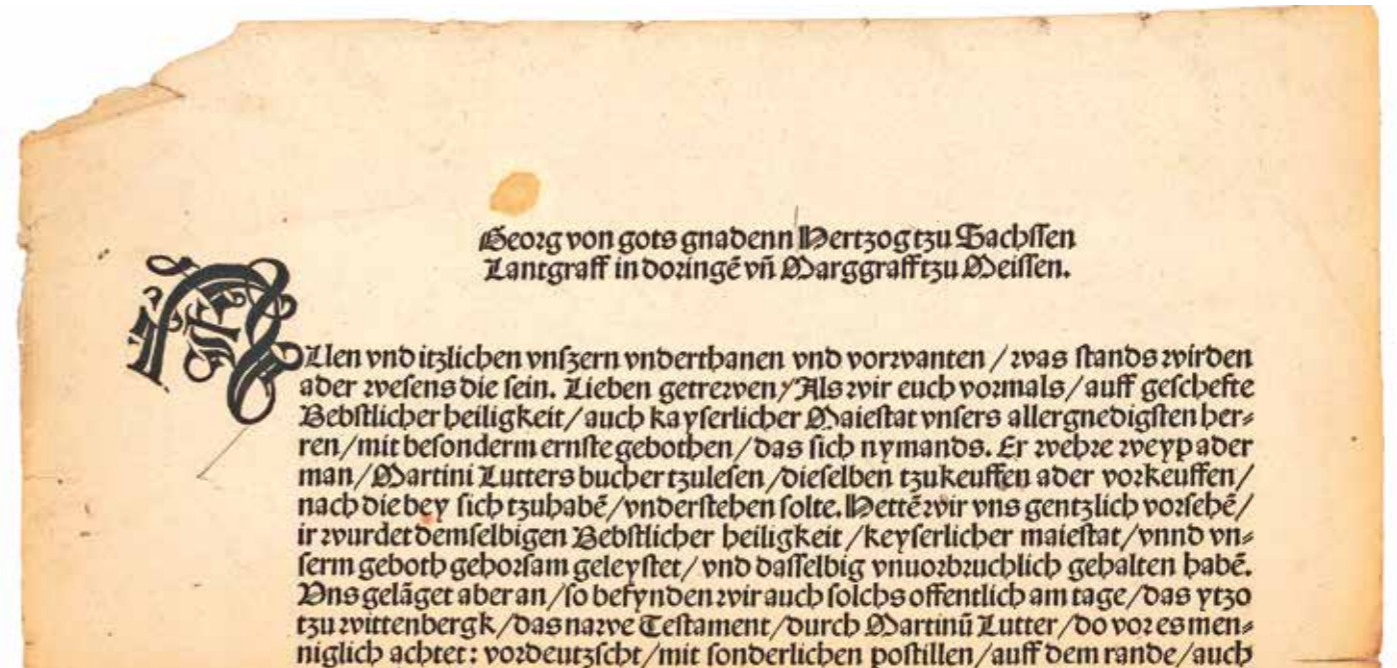 Georg von gots gnadenn Hertzog tzu Sachssen
Lantgraff in doringē vn̄ Marggraff tzu Meissen.
ALlen vnd itzlichen vnszern vnderthanen vnd vorwanten / was stands wirden
ader wesens die sein. Lieben getrewen / Als wir euch vormals / auff geschefte
Bebstlicher heiligkeit / auch kayserlicher Maiestat vnsers allergnedigsten her⸗
ren / mit besonderm ernste gebothen / das sich nymands. Er wehre weyp ader
man / Martini Lutters bucher tzulesen / dieselben tzukeuffen ader vorkeuffen /
nach die bey sich tzuhabē / vnderstehen solte. Hettē wir vns gentzlich vorsehē /
ir wurdet demselbigen Bebstlicher heiligkeit / keyserlicher maiestat / vnnd vn⸗
serm geboth gehorsam geleystet / vnd dasselbig vnuorbruchlich gehalten habē.
Vns gelāget aber an / so befynden wir auch solchs offentlich am tage / das ytzo
tzu wittenbergk / das nawe Testament / durch Martinū Lutter / do vor es men⸗
niglich achtet: vordeutzscht / mit sonderlichen postillen / auff dem rande / auch